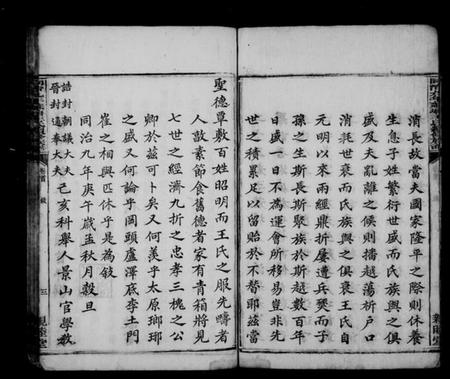 消長故當夫國家隆平之際則休養
生息子姓繁衍世盛而氏族與之俱
盛及夫亂離之候則播越蕩析戶口
消耗世衰而氏族與之俱衰王氏自
元明以來兩經鼎折屢遭兵燹而子
孫之生斯長斯聚族於斯越數百年
日盛一日不為運會所移易豈非先
世之積累足以留貽於不替耶茲當
聖德覃敷百姓昭明而王氏之服先疇者
人敦素節食舊德者家有青箱將見
七世之經濟九折之忠孝三槐之公
卿於茲可卜矣又何羨乎太原瑯琊
之盛又何論乎岡頭盧澤底李土門
崔之相與匹休乎是為敘
同治九年庚午歲孟秋月穀旦
誥封朝議大夫
晉封通奉大夫
己亥科舉人景山官學教